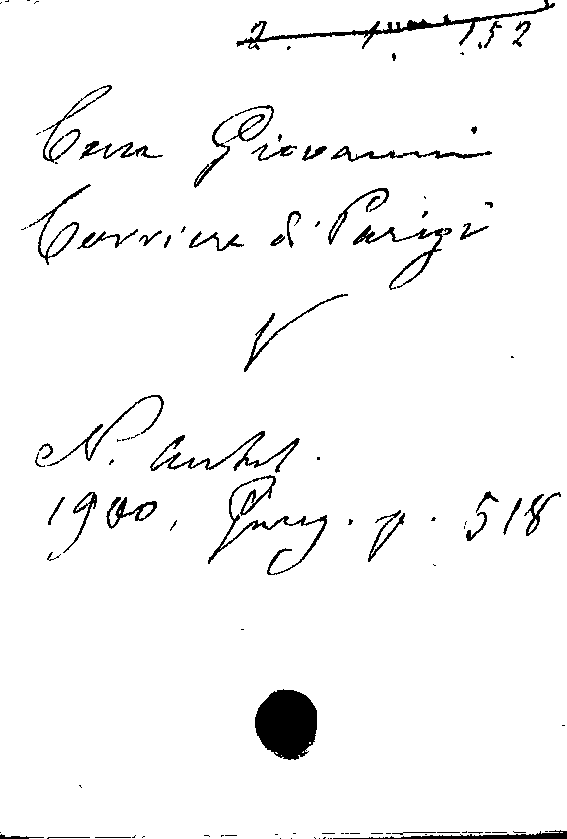 2. 1 152
Cena Giovanni
Corriere di Parigi
V
N. Antol.
1900, Giug. p. 518